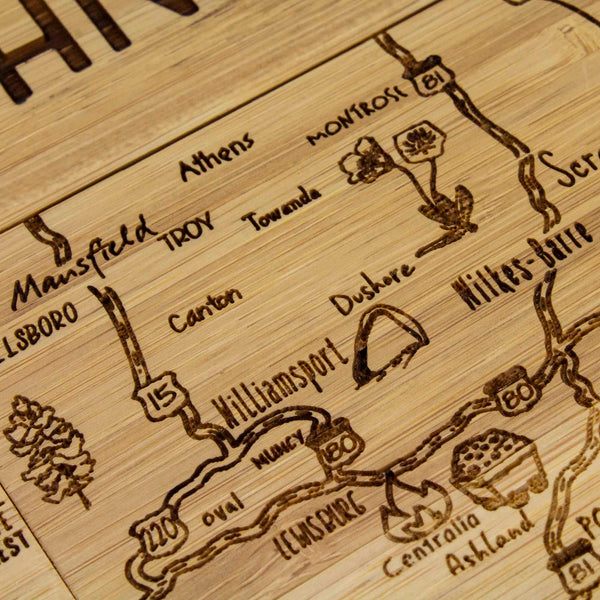 81
MONTROSE
Athens
Scr
TROY
Towanda
Mansfield
Wilkes-Barre
LLSBORO
Canton
Dushore
15
Williamsport
80
MUNCY
80
220
Oval
LEWISBURG
Centralia
Ashland
81